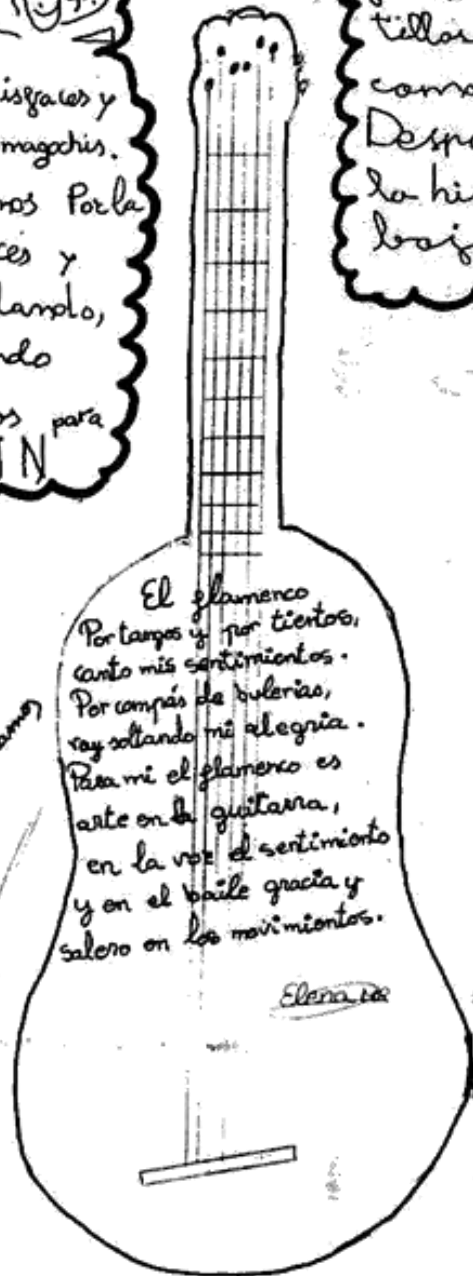 isfraces y
magochis.
nos Por la
ces y
lando,
ndo
os para
IN
tillar
como
Desp
la hi
baj
El flamenco
Por tangos y por tientos,
canto mis sentimientos.
Por compás de bulerias,
voy soltando mi alegria.
Para mi el flamenco es
arte en la guitarra,
en la voz el sentimiento
y en el baile gracia y
salero en los movimientos.
Elena
amos